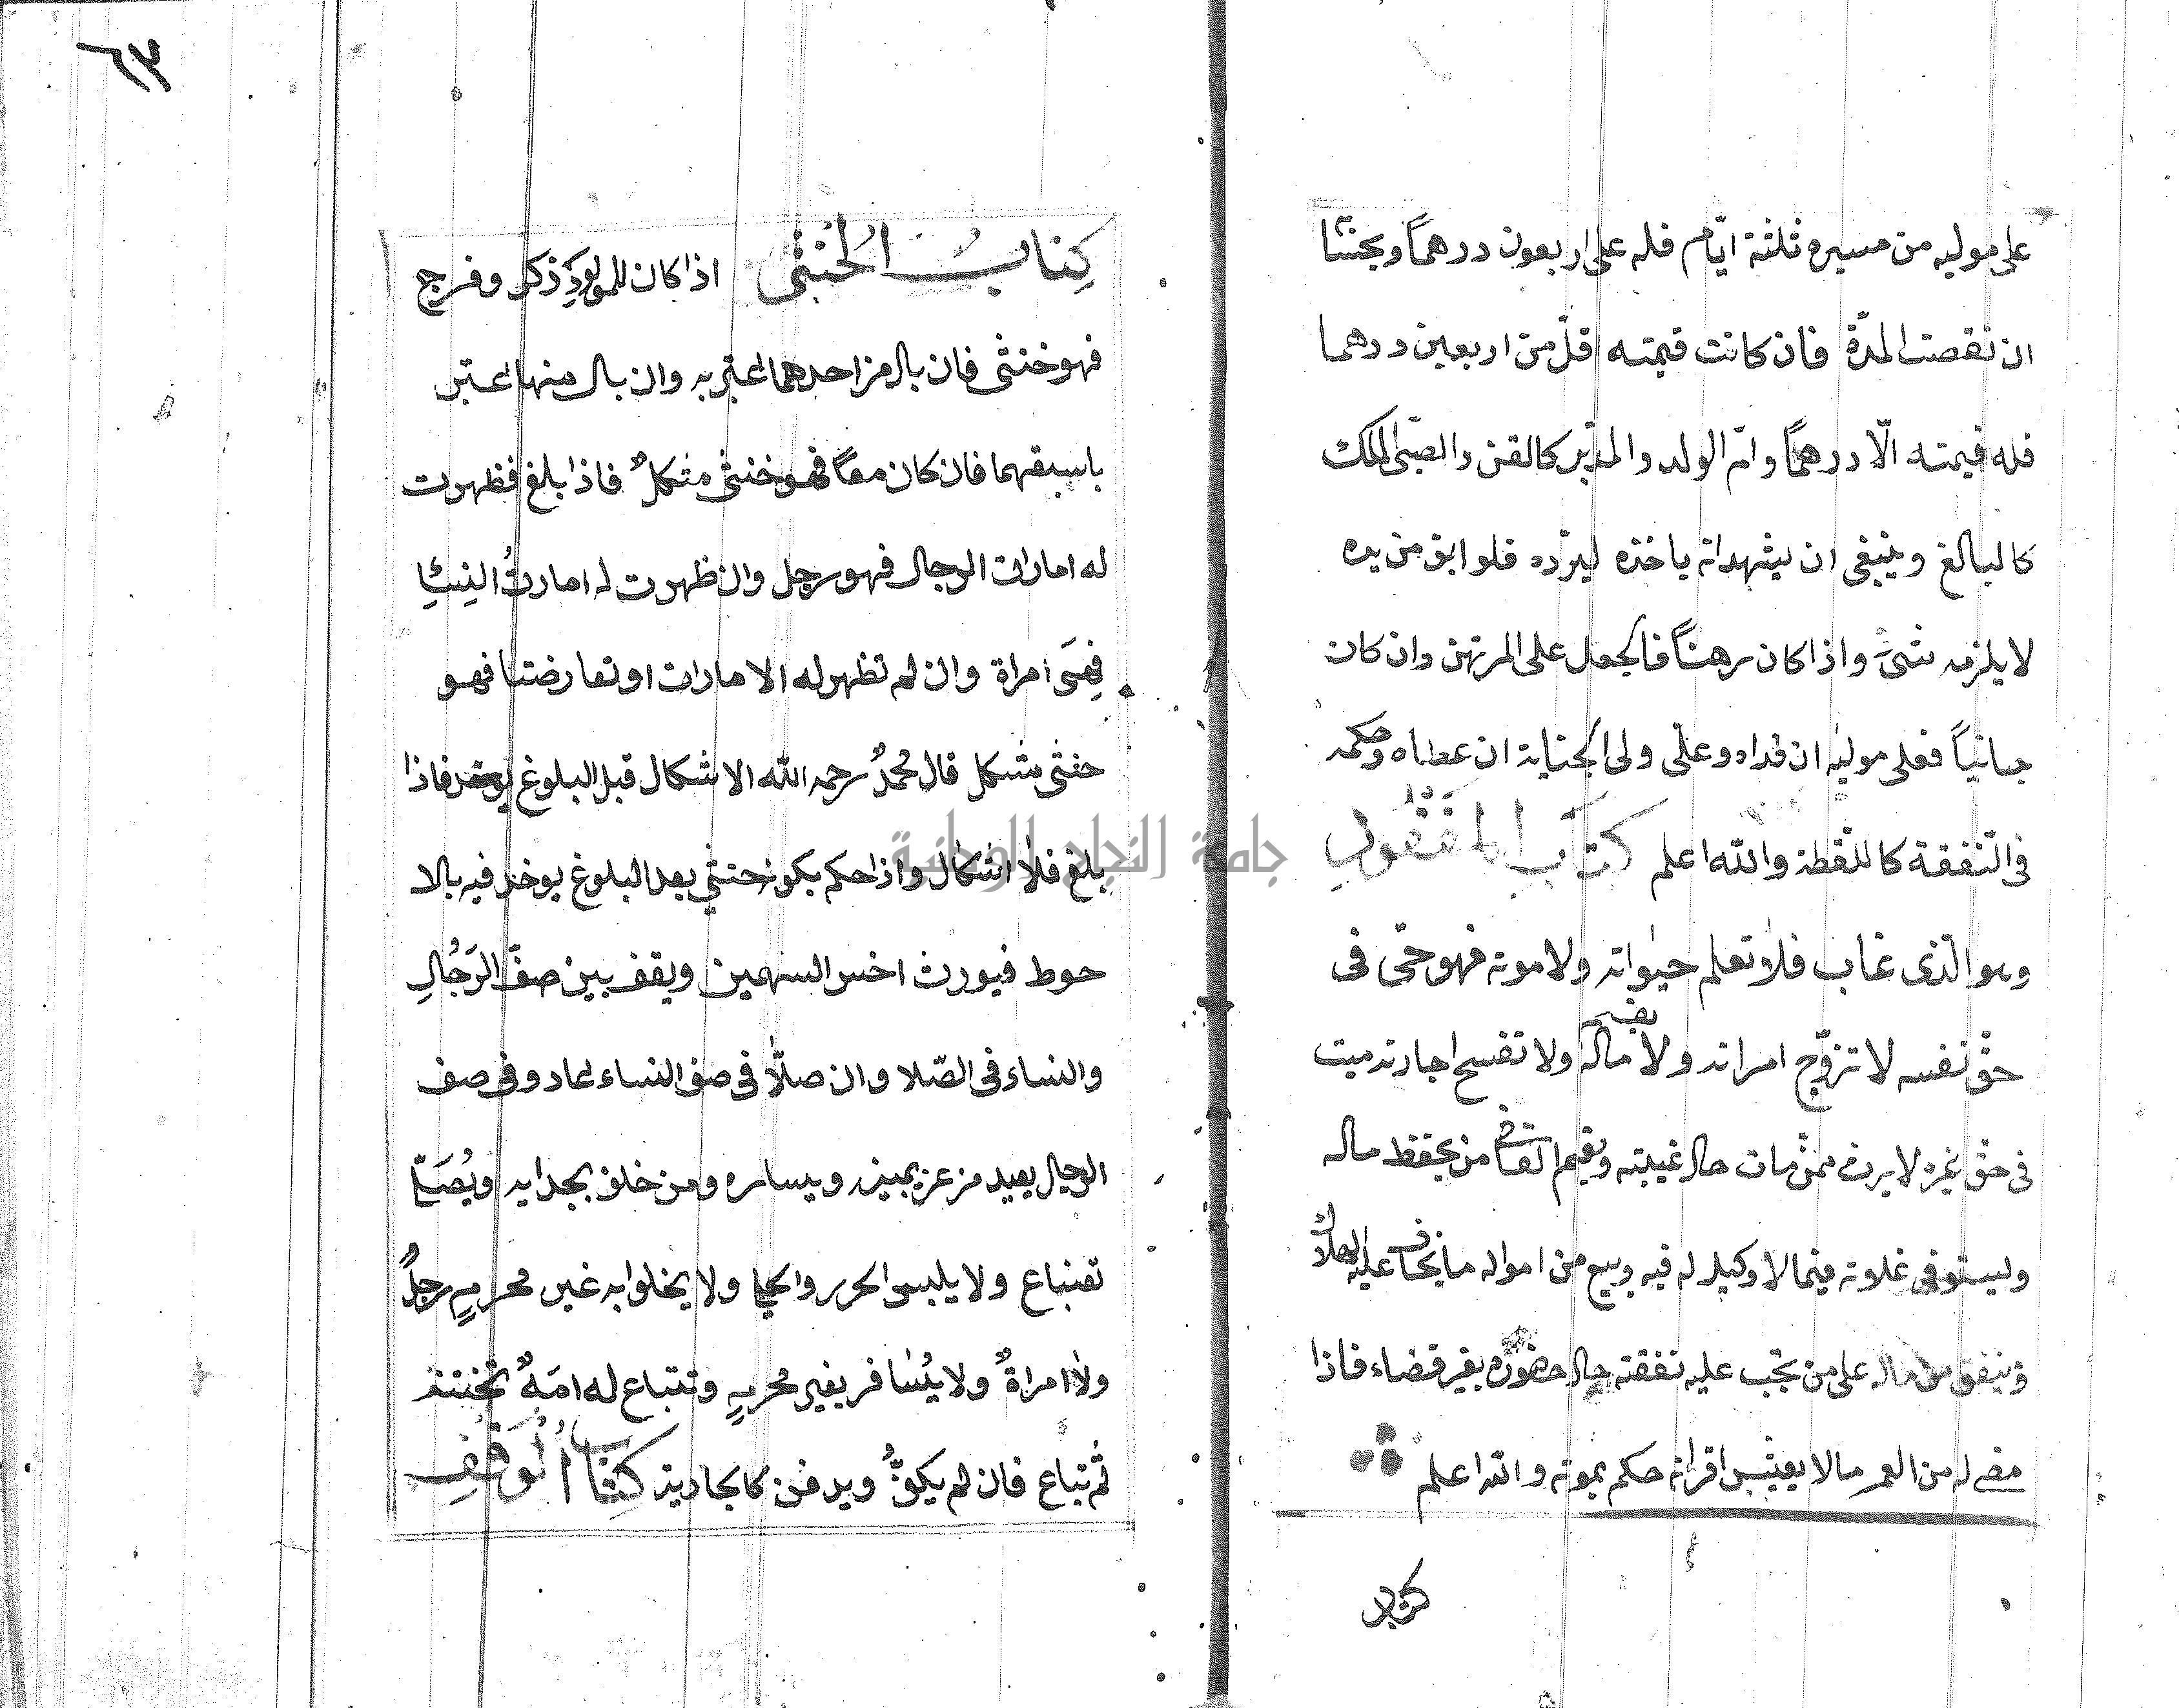 على موليه من مسيرة ثلثة ايّام فله على اربعون درهماً وبحسابها
ان نقصت المدّة فان كانت قيمته اقلّ من اربعين درهما
فله قيمته الّا درهماً وامّ الولد والمدبّر كالقن والصبّى المالك
كالبالغ وينبغى ان يشهد انه ياخذه ليردّه فلو ابق من يده
لا يلزمه شىءٌ واذا كان رهناً فالجعل على المرتهن وان كان
جانياً فعلى موليه ان فداه وعلى ولى الجناية ان عطاه وحكمه
فى النّفقة كاللقطة والله اعلم كتاب المفقود
وهو الّذى غاب فلا تعلم حيواته ولا موته فهو حىّ فى
حقّ نفسه لا تزوّج امراته ولا يقسم ماله ولا تفسح اجارته ميت
فى حقّ غيره لا يرث ممّن مات حال غيبته ويقيم القاضى من يحفظ ماله
ويستوفى غلاته فيما لا وكيل له فيه ويبيع من امواله ما يخاف عليه الهلاك
وينفق من ماله على من تجب عليه نفقته حال حضوره بغير قضاء فاذا
مضى له من العمر ما لا يعيش اقرانه حكم بموته والله اعلم
كتاب
٦٣
كتاب الخنثى اذا كان للمولود ذكر وفرج
فهو خنثى فان بال من احدهما اعتبر به وان بال منهما اعتبر
باسبقهما فان كان معاً فهو خنثى مشكلٌ فاذا بلغ فظهرت
له امارات الرجال فهو رجل وان ظهرت له امارتُ النسا
فهِىَ امراة وان لم تظهر له الامارات او تعارضتا فهو
خنثى مشكل قال محمدٌ رحمه الله الاشكال قبل البلوغ فاذا
بلغ فلا اشكال واذا حكم بكونه خنثى بعد البلوغ يوخذ فيه بالا
حوط فيورث اخس السهمين ويقف بين صفّ الرَجُالِ
والنساء فى الصّلا وان صلّا فى صف النساء اعاد وفى صف
الرجال يعيد من عن يمينه ويساره ومن خلفه بحدايه ويُصَلّى
تقنباع ولا يلبس الحرير والحليا ولا يخلوا به غير محرمٍ رجلٌ
ولا امراةٌ ولا يُسافر بغير محرمٍ وتتباع له امَةٌ تختنته
ثم تباع فان لم يكنُّ ويدفن كالجارية كتابُ الوَقْفِ
جامعة النجاح الوطنية